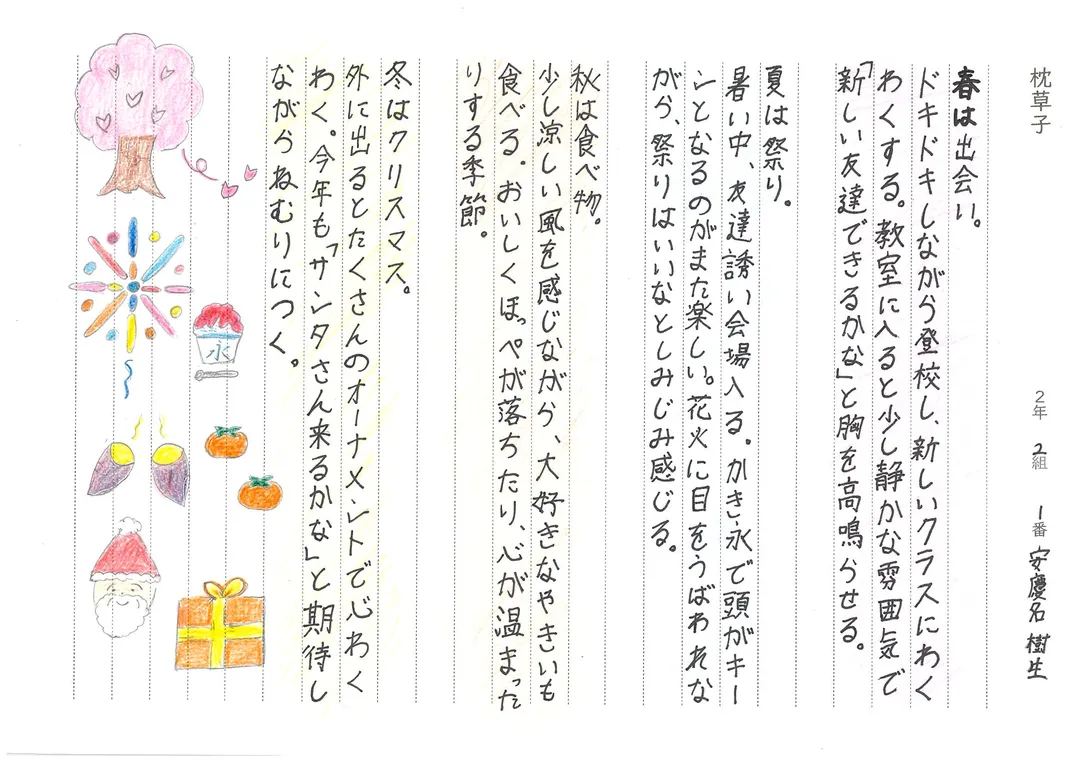 枕草子
2年 2組 1番 安慶名 樹生
春は出会い。
ドキドキしながら登校し、新しいクラスにわく
わくする。教室に入ると少し静かな雰囲気で
「新しい友達できるかな」と胸を高鳴らせる。
夏は祭り。
暑い中、友達誘い会場入る。かき氷で頭がキー
ンとなるのがまた楽しい。花火に目をうばわれな
がら、祭りはいいなとしみじみ感じる。
秋は食べ物。
少し涼しい風を感じながら、大好きなやきいも
食べる。おいしくほっぺが落ちたり、心が温まった
りする季節。
冬はクリスマス。
外に出るとたくさんのオーナメントで心わく
わく。今年も「サンタさん来るかな」と期待し
ながらねむりにつく。
氷